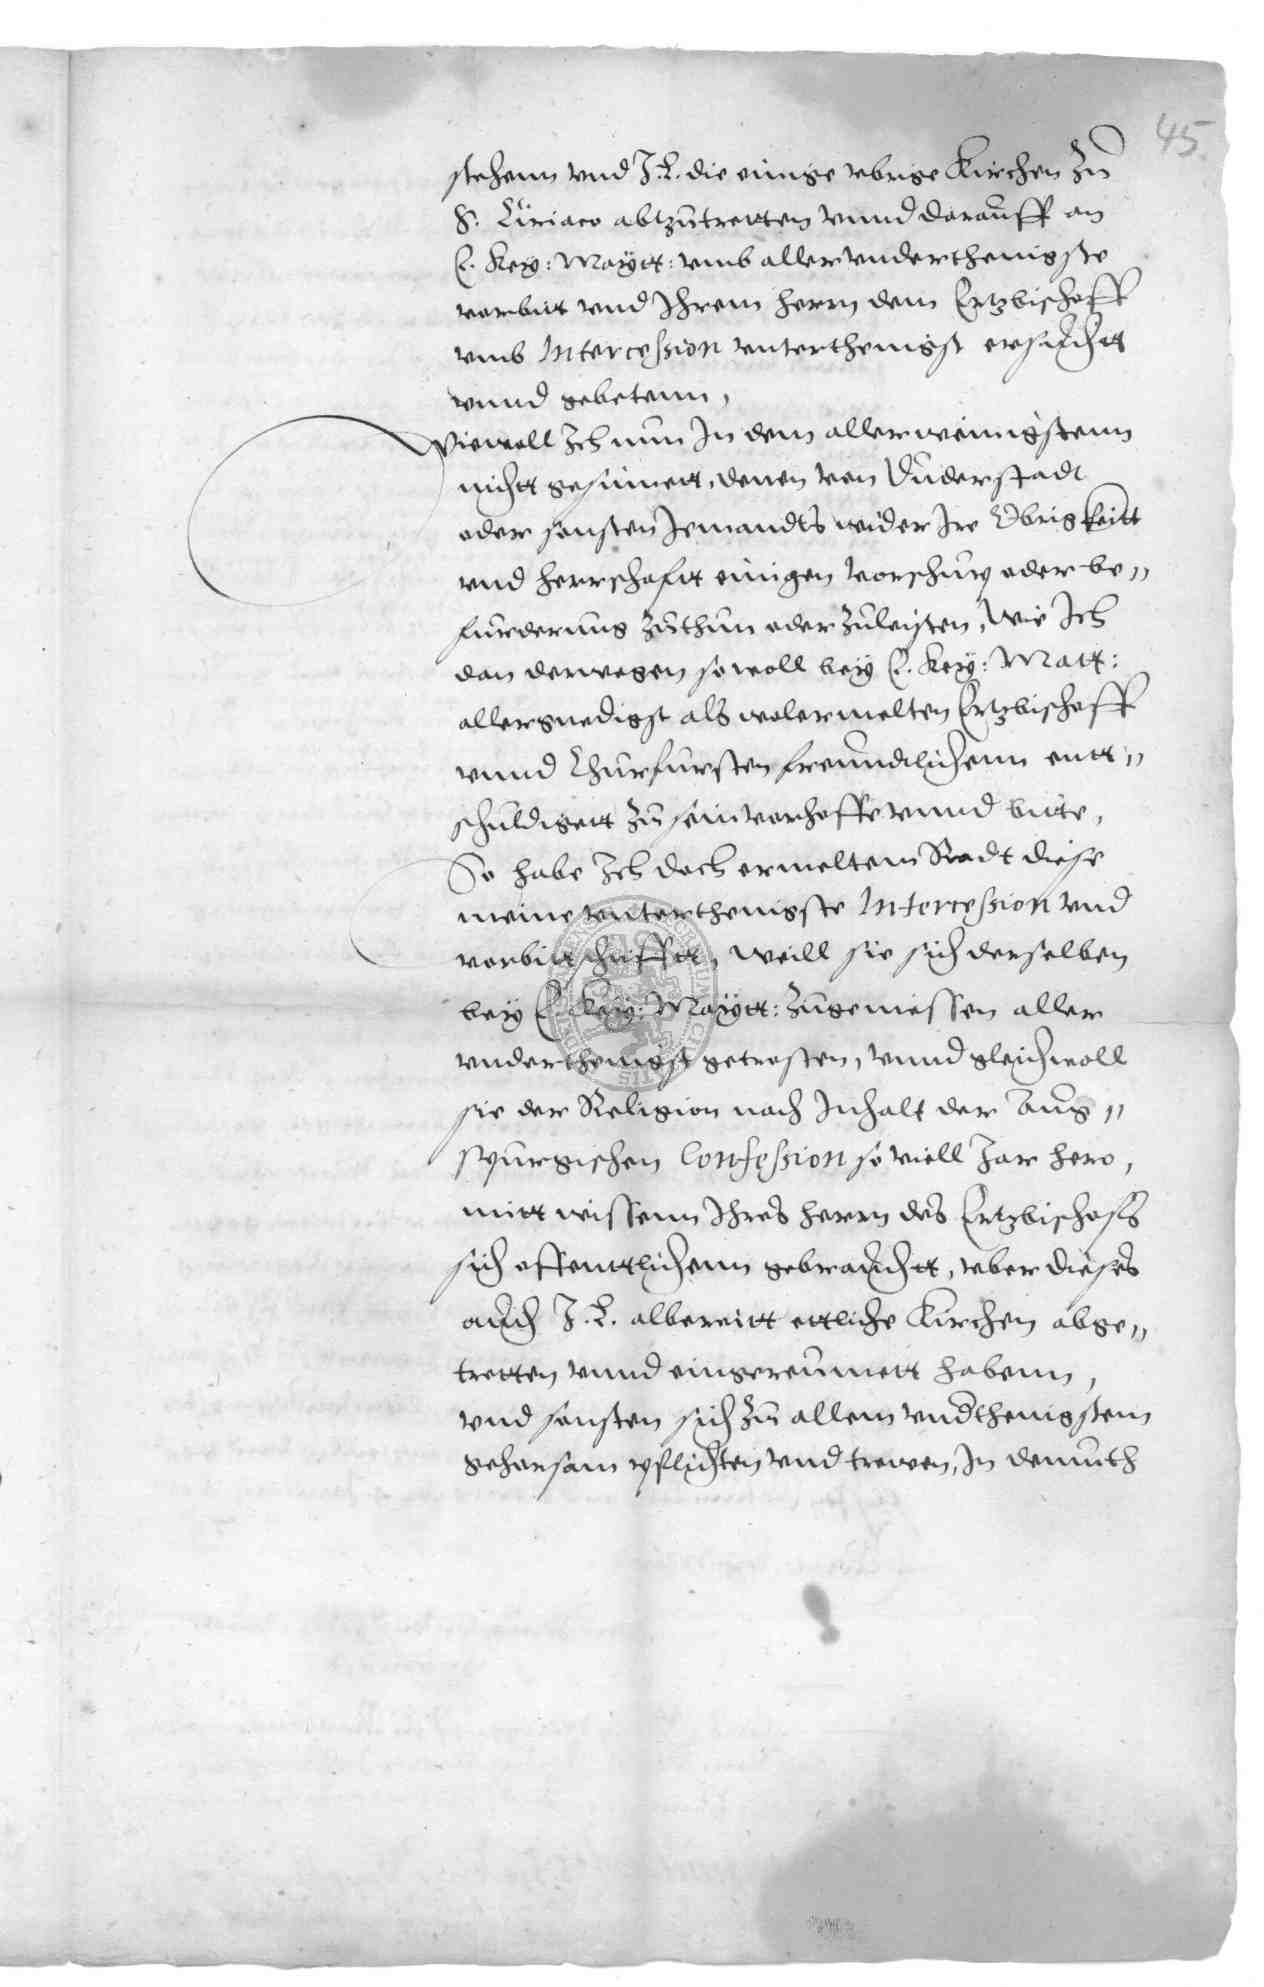 45.
stehenn vnd J. L. die einige vbrige Kirchen zu
S. Ciriaco abtzutretten vnnd darauff an
E. Key: Maytt: vmb allervnderthenigste
vorbitt vnd Ihrem herrn dem Ertzbischoff
vmb Intercession vnterthenigst ersuchtt
vnnd gebetenn,
Wiewoll Ich nun In dem allerweinigstenn
nichtt gesinnett, denen von Duderstadt
oder sonsten Jemandts wider Ire Obrigkeitt
vnd herrschafft einigen vorschuep oder be„
furderung zuthun oder zuleisten, wie Ich
dan derwegen sowoll bey E. Key: Matt:
allergnedigst als wolermelten Ertzbischoff
vnnd Churfursten freundtlichenn entt„
schuldigett zu sein verhoffe vnnd bitte,
So habe Ich doch ermeltem Radt diese
meine vnterthenigste Intercession vnd
vorbittschrifft, weill sie sich derselben
bey E. Key: Maytt: zugeniessen aller
vnderthenigst getrosten, vnnd gleichwoll
sie der Religion nach Inhalt der Aug„
spurgischen Confession so viell Jar hero,
mitt wissenn Ihres herrn des Ertzbischofs
sich offenttlichenn gebrauchtt, vber dieses
auch J. L. albereitt ettliche Kirchen abge„
tretten vnnd eingereumett habenn,
vnd sonsten sich zu allem vnderthenigstem
gehorsam pflichten vnd trewen, In demuth